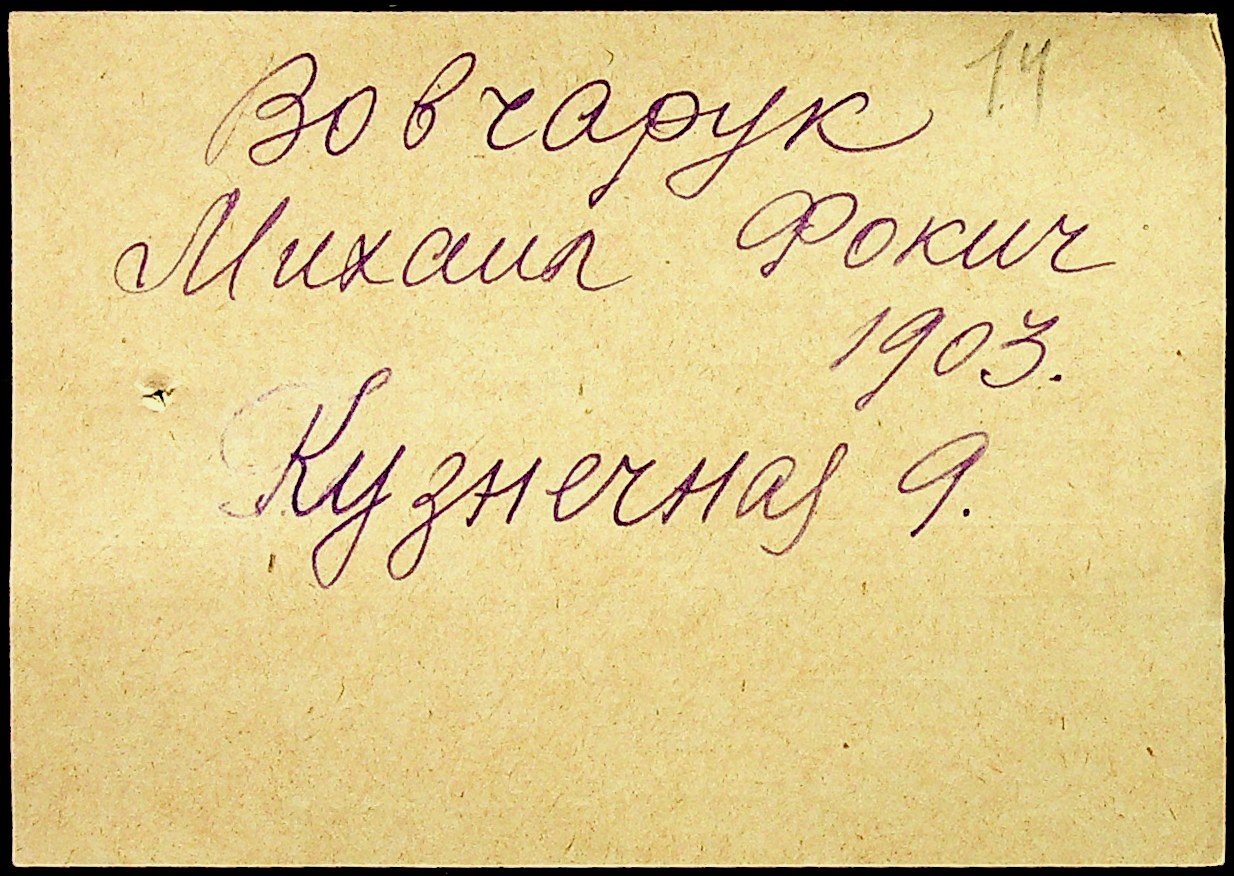 Вовчарук
Михаил Фокич
1903.
Кузнечная 9.